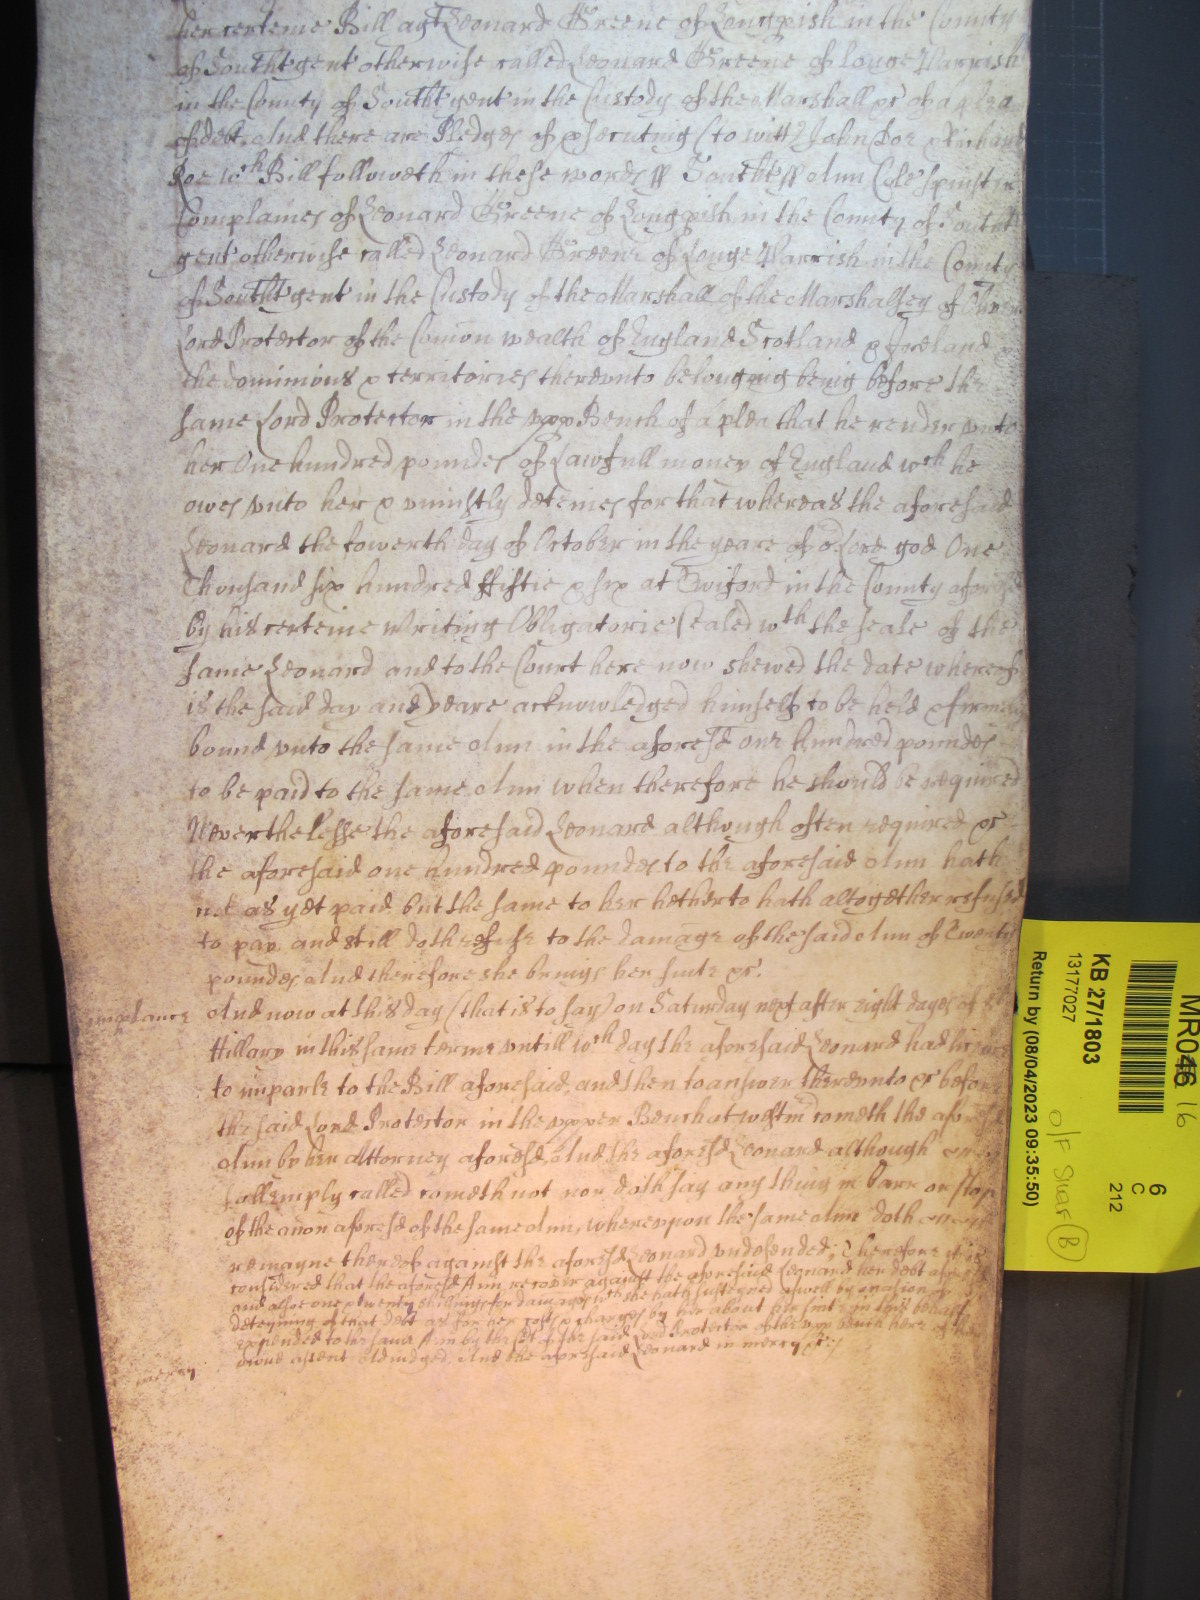 her certeine Bill agt Leonard Greene of Longpish in the County
of Southt gent otherwise called Leonard Greene of Longe Parrish
in the County of Southt gent in the Custody of the Marshall &c of a plea
of debt And there are Pledges of psecuting (to witt) John Doe & Richard
Roe wch Bill followeth in these words ss Southt ss Ann Cole spinster
Complaines of Leonard Greene of Longpish in the County of Southt
gent otherwise called Leonard Greene of Longe Parrish in the County
of Southt gent in the Custody of the Marshall of the Marshalsey of Oliver
Lord Protector of the Comon wealth of England Scotland & Ireland &
the dominions & territories thereunto belonging being before the
same Lord Protector in the upp Bench of a plea that he render unto
her One hundred poundes of Lawfull money of England wch he
owes unto her & uniustly deteines for that whereas the aforesaid
Leonard the fowerth day of October in the yeare of or Lord god One
Thousand six hundred ffiftie & six at Twiford in the County aforesd
by his certeine Writing Obligatorie sealed wth the seale of the
same Leonard and to the Court here now shewed the date whereof
is the said day and yeare acknowledged himself to be held & firmely
bound unto the same Ann in the aforesd one hundred poundes
to be paid to the same Ann when therefore he should be required
Neverthelesse the aforesaid Leonard although often required &c
the aforesaid one hundred poundes to the aforesaid Ann hath
not as yet paid but the same to her hetherto hath altogether refused
to pay and still doth refuse to the damage of the said Ann of Twenty
poundes And therefore she brings her suite &c.
imparlance And now at this day (that is to say) on Saturday next after eight dayes of St
Hillary in this same terme untill wch day the aforesaid Leonard had licence
to imparle to the Bill aforesaid and then to answer thereunto &c before
the said Lord Protector in the upper Bench at Westmr cometh the aforesd
Ann by her Attorney aforesd And the aforesd Leonard although
sollemply called cometh not nor doth say any thing in barr or stop
of the accion aforesd of the same Ann, whereupon the same Ann doth
remayne thereof against the aforesd Leonard undefended; Therefore it is
considered that the aforesd Ann recover against the aforesaid Leonard her debt aforesd
and alsoe one & twenty shillings for damages wch she hath susteyned aswell by occasion of
deteyning of that debt as for her costs & charges by her about her suite in this behalf
expended to the same Ann by the Court of the said Lord Protector of the upp bench here of her
owne assent Adiudged, And the aforesaid Leonard in mercy &c
mercy
MR046 16
6
C
212
KB 27/1803
13177027
Return by (08/04/2023 09:35:50)
O/F
B